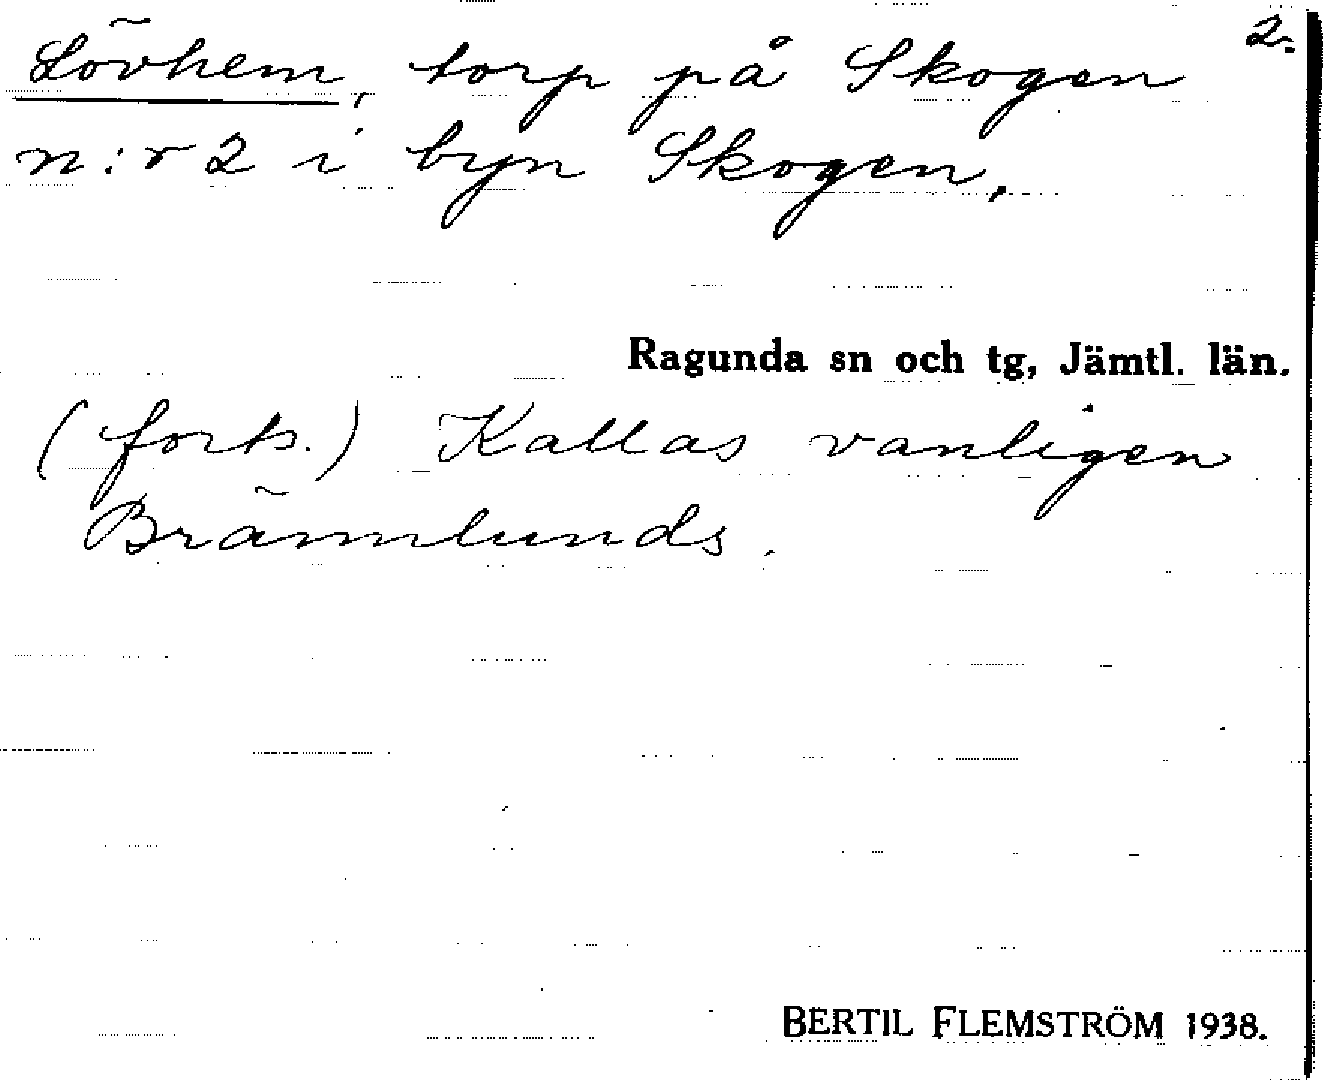 2.
Lövhem, torp på Skogen
n:r 2 i byn Skogen.
Ragunda sn och tg, Jämtl. län.
(forts.) Kallas vanligen
Brännlunds.
BERTIL FLEMSTRÖM 1938.